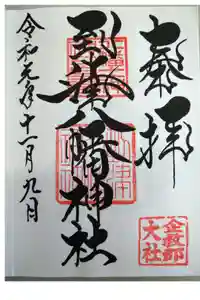 奉拝
到津八幡神社
令和元年十一月九日
企救郡
大社